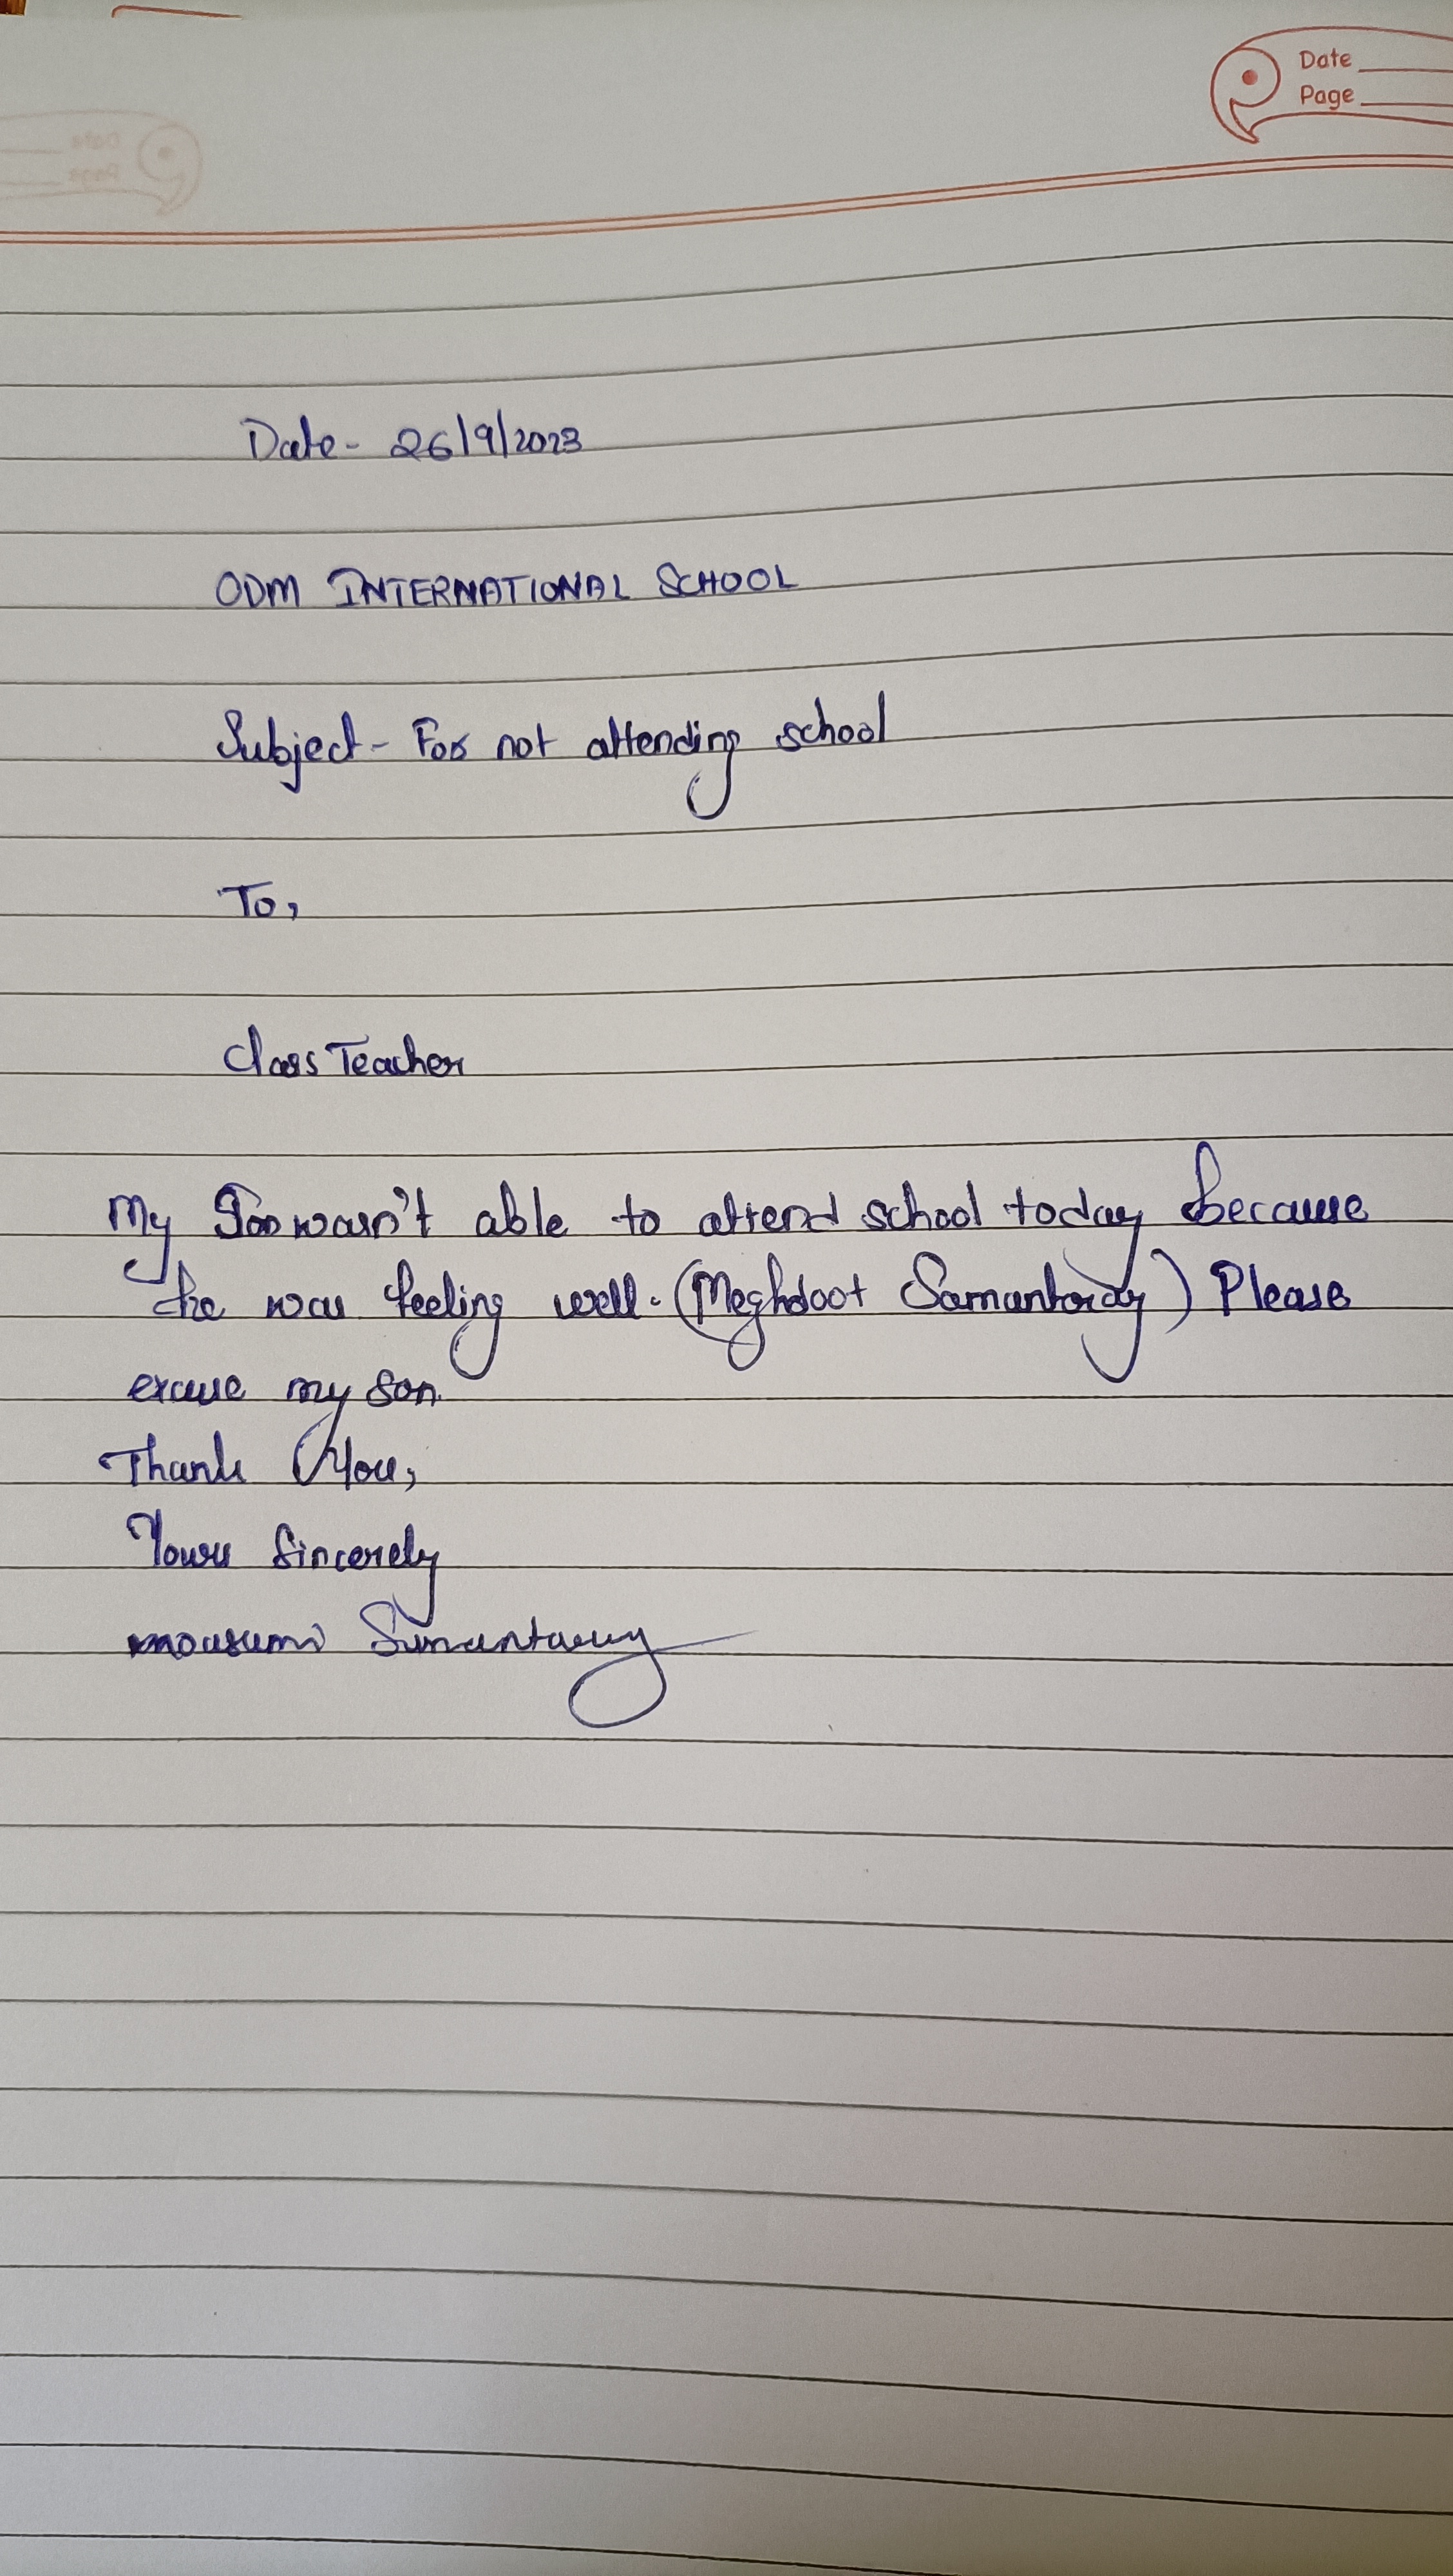 Date
Page
Date - 26/9/2023
ODM INTERNATIONAL SCHOOL
Subject - For not attending school
To,
Class Teacher
My Son wasn't able to attend school today because
he was feeling well. (Meghdoot Samantaray) Please
excuse my son.
Thank You,
Yours Sincerely
mousumi Samantaray